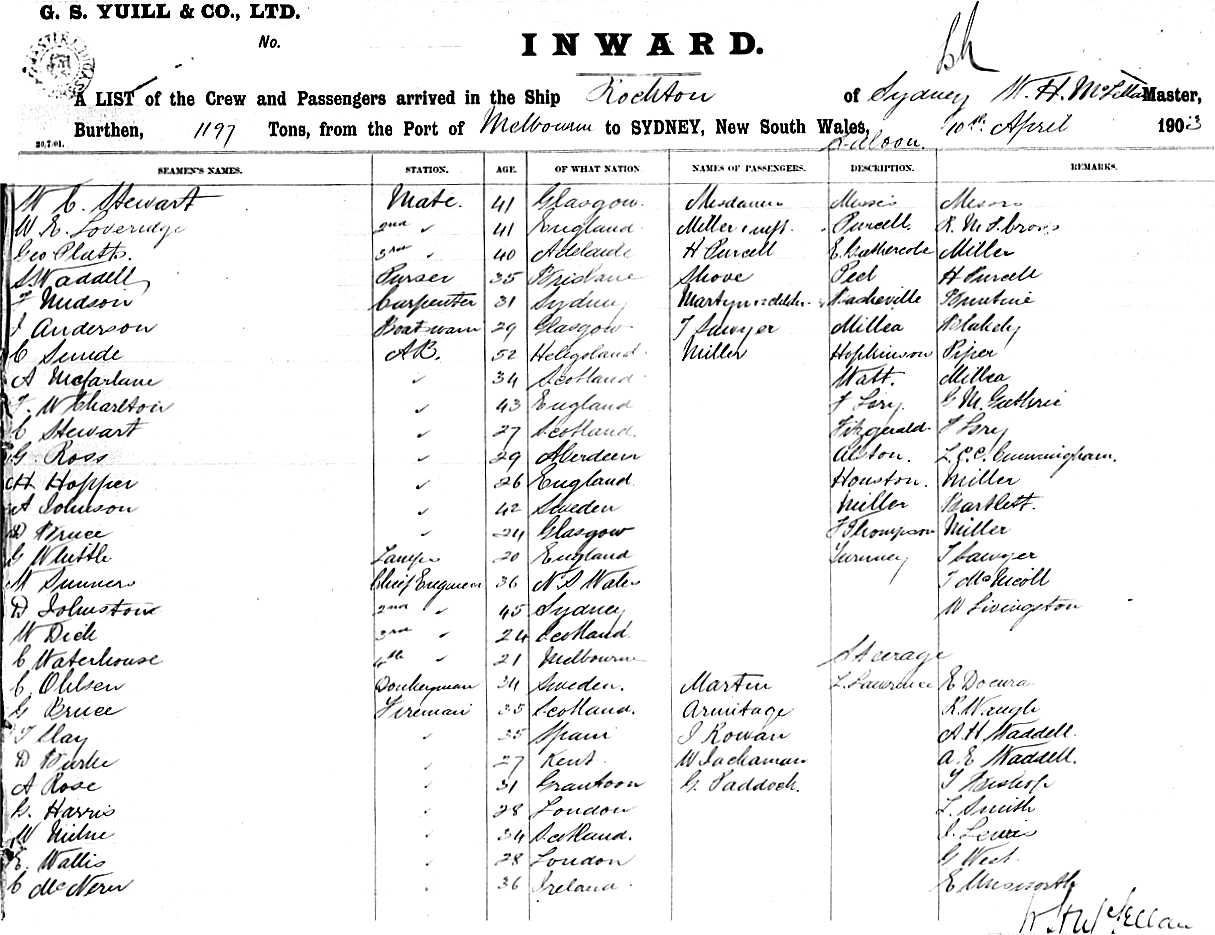 G. S. YUILL & CO., LTD.
No.
INWARD.
A LIST of the Crew and Passengers arrived in the Ship Rockton of Sydney W. H. McLellan Master,
Burthen, 1197 Tons, from the Port of Melbourne to SYDNEY, New South Wales, 10th April 1903
20.7.01.
Saloon.
SEAMEN'S NAMES. STATION. AGE. OF WHAT NATION NAMES OF PASSENGERS. DESCRIPTION. REMARKS.
W C. Stewart Mate. 41 Glasgow. Mesdames Misses Messrs
W E. Loveridge 2nd " 41 England Miller & inft. Purcell.
Geo 3rd " 40 Adelaide H Purcell E. Gathercole Miller
S Waddell Purser 35 Brisbane Shove Peel H Purcell
Carpenter 31 Sydney
J Anderson Boatswain 29 Glasgow T Sawyer Millea Blakely
C AB. 52 Heligoland. Miller Hopkinson Piper
A McFarlane " 34 Scotland Watt. Millea
F. W Charlton " 43 England F Lory. G. M. Guthrie
C Stewart " 27 Scotland. Fitzgerald. F Lory
G. Ross " 29 Aberdeen Alston. L. E. C. Cunningham.
H Hopper " 26 England Houston. Miller
A Johnson " 42 Sweden Miller Bartlett.
D Bruce " 24 Glasgow F Thompson Miller
G Whittle Lamps 20 England T Sawyer
W Sumners Chief Engineer 36 N. S Wales T McNicoll
D Johnstone 2nd " 45 Sydney W Livingston
W Dick 3rd " 24 Scotland
C Waterhouse 4th " 21 Melbourne Steerage
C. Ohlsen Donkeyman 34 Sweden. Martin L. Lawrence E Docura
G Bruce Fireman 35 Scotland. Armitage R Waugh
T Clay " 35 Spain J Rowan A H Waddell.
D Burke " 27 Kent. W Jachaman A. E Waddell.
A Rose " 31 Grantoon G. Paddock.
G. Harris " 28 London L. Smith
W Milne " 34 Scotland. J. Lewis
E. Wallis " 28 London G West.
C McNern " 36 Ireland. E Unsworth
W H McLellan